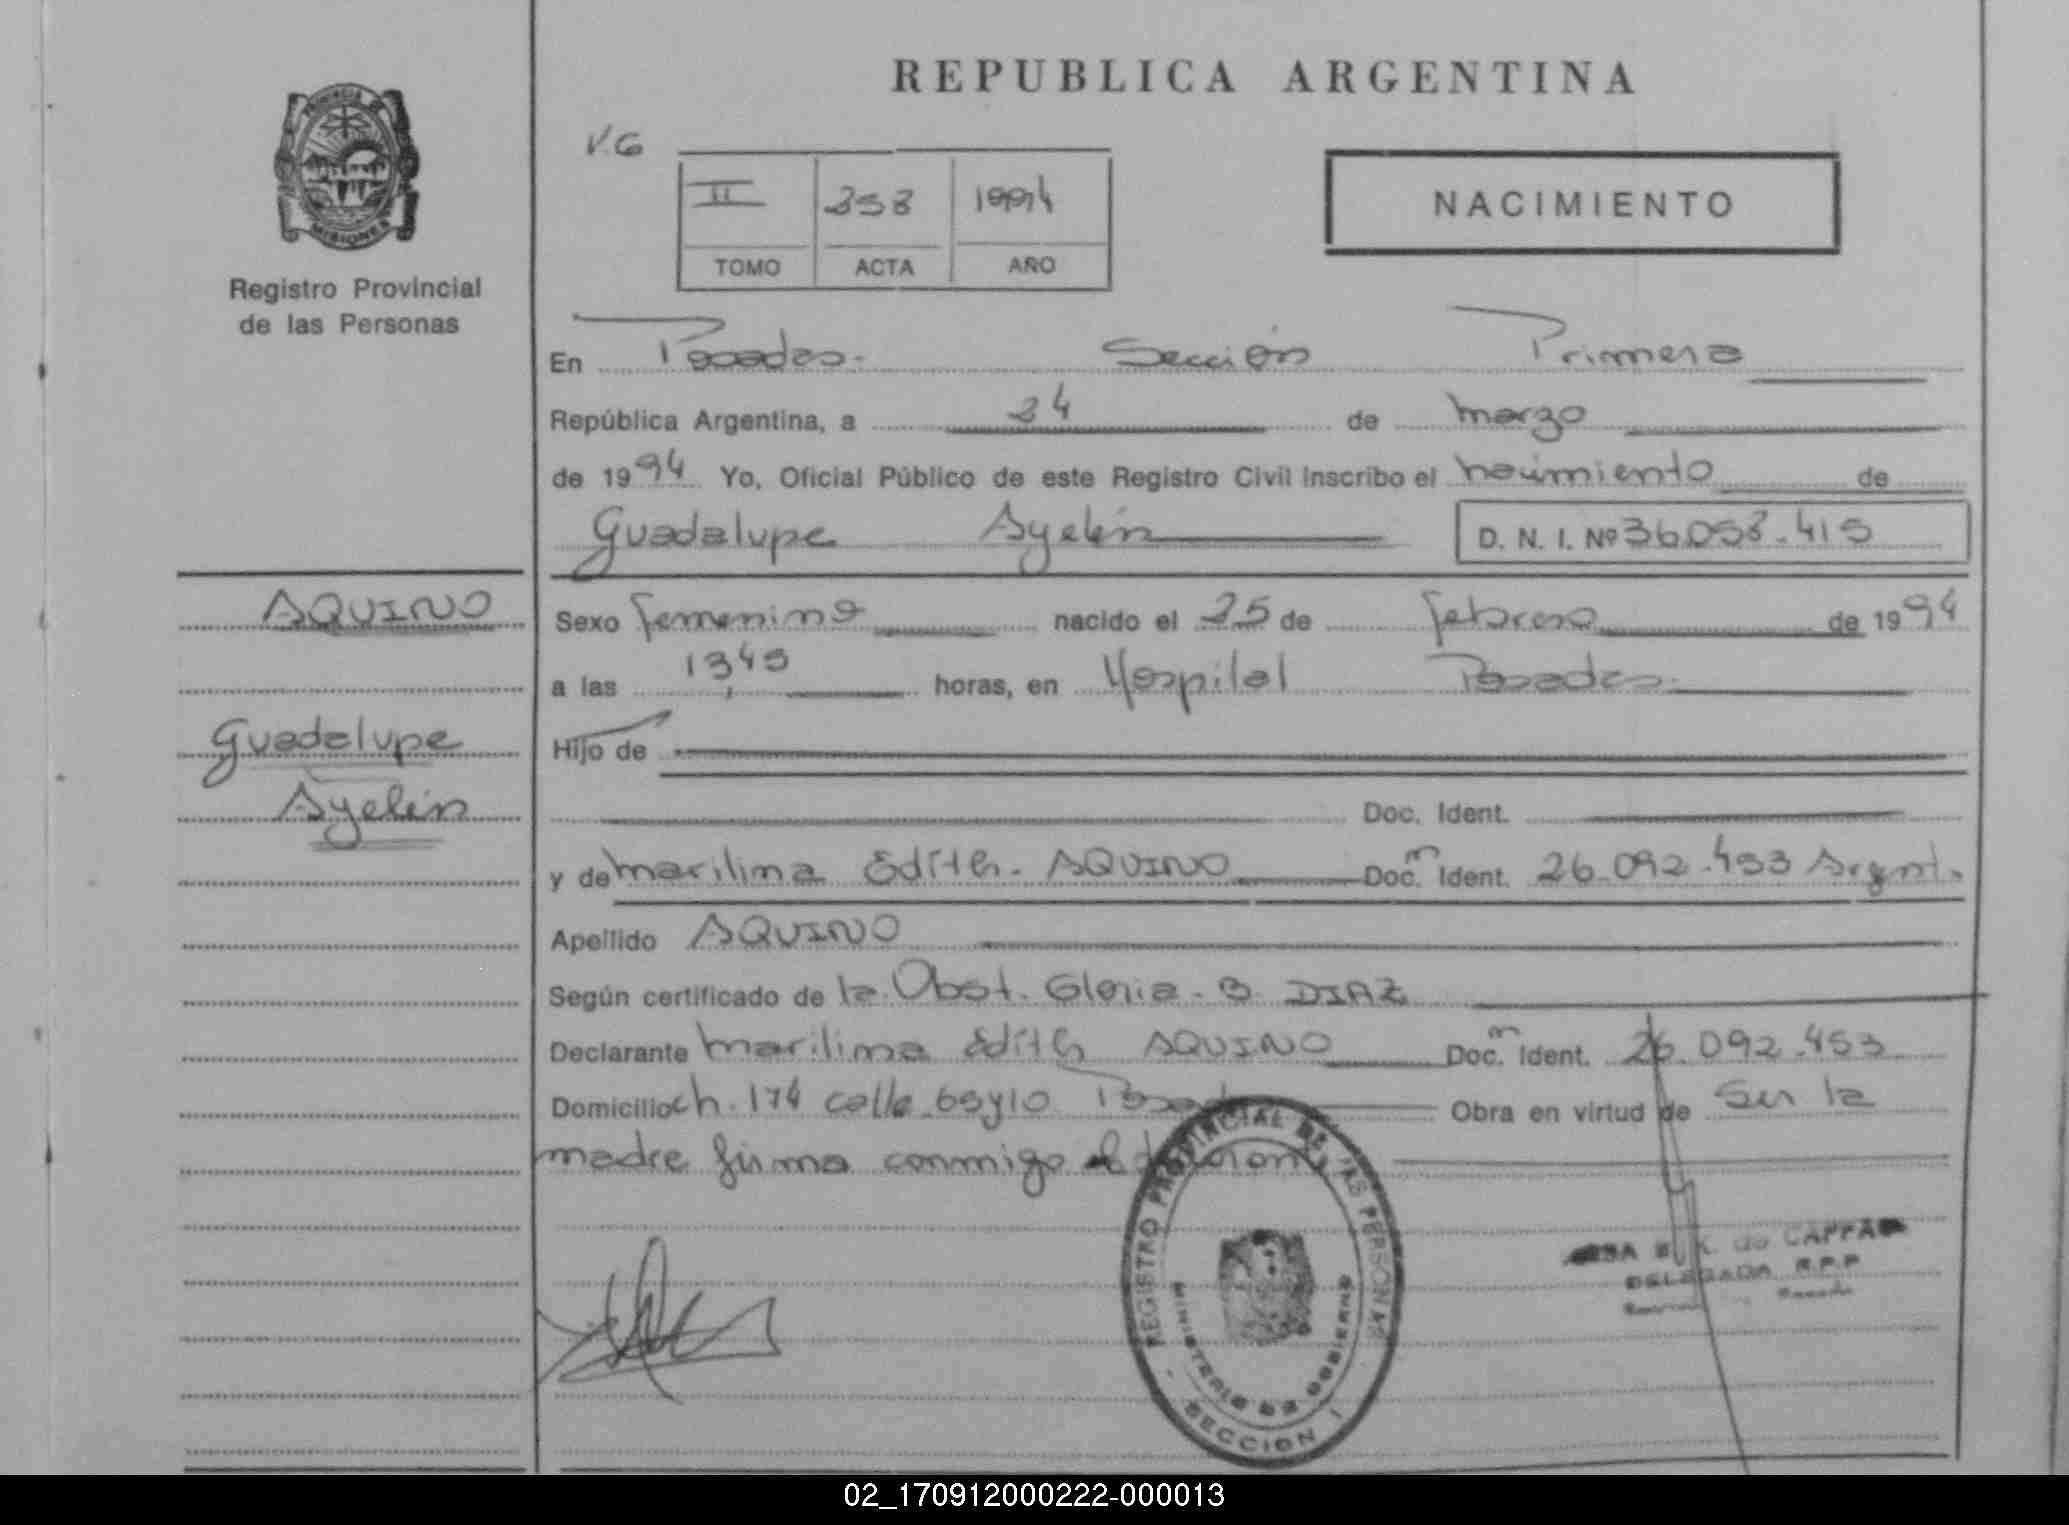 REPUBLICA ARGENTINA
PROVINCIA DE
MISIONES
Registro Provincial
de las Personas
V.G
II 358 1994
TOMO ACTA AÑO
NACIMIENTO
En Posadas. Sección Primera
República Argentina, a 24 de marzo
de 1994 Yo, Oficial Público de este Registro Civil inscribo el nacimiento de
Guadalupe Ayelén D. N. I. Nº 36.058.415
AQUINO
Guadalupe
Ayelén
Sexo femenino nacido el 25 de febrero de 1994
a las 1345 horas, en Hospital Posadas.
Hijo de
Doc. Ident.
y de marilima Edith. AQUINO Doc. Ident. 26.092.453 Argent.
Apellido AQUINO
Según certificado de la Obst. Gloria. B. DIAZ
Declarante marilima Edith AQUINO Doc. Ident. 26.092.453
Domicilio ch. 174 calle 65 y 10 Obra en virtud de Ser la
madre firma conmigo
REGISTRO PROVINCIAL DE LAS PERSONAS
MINISTERIO DE GOBIERNO
SECCION I
DELEGADA R.P.P
02_170912000222-000013